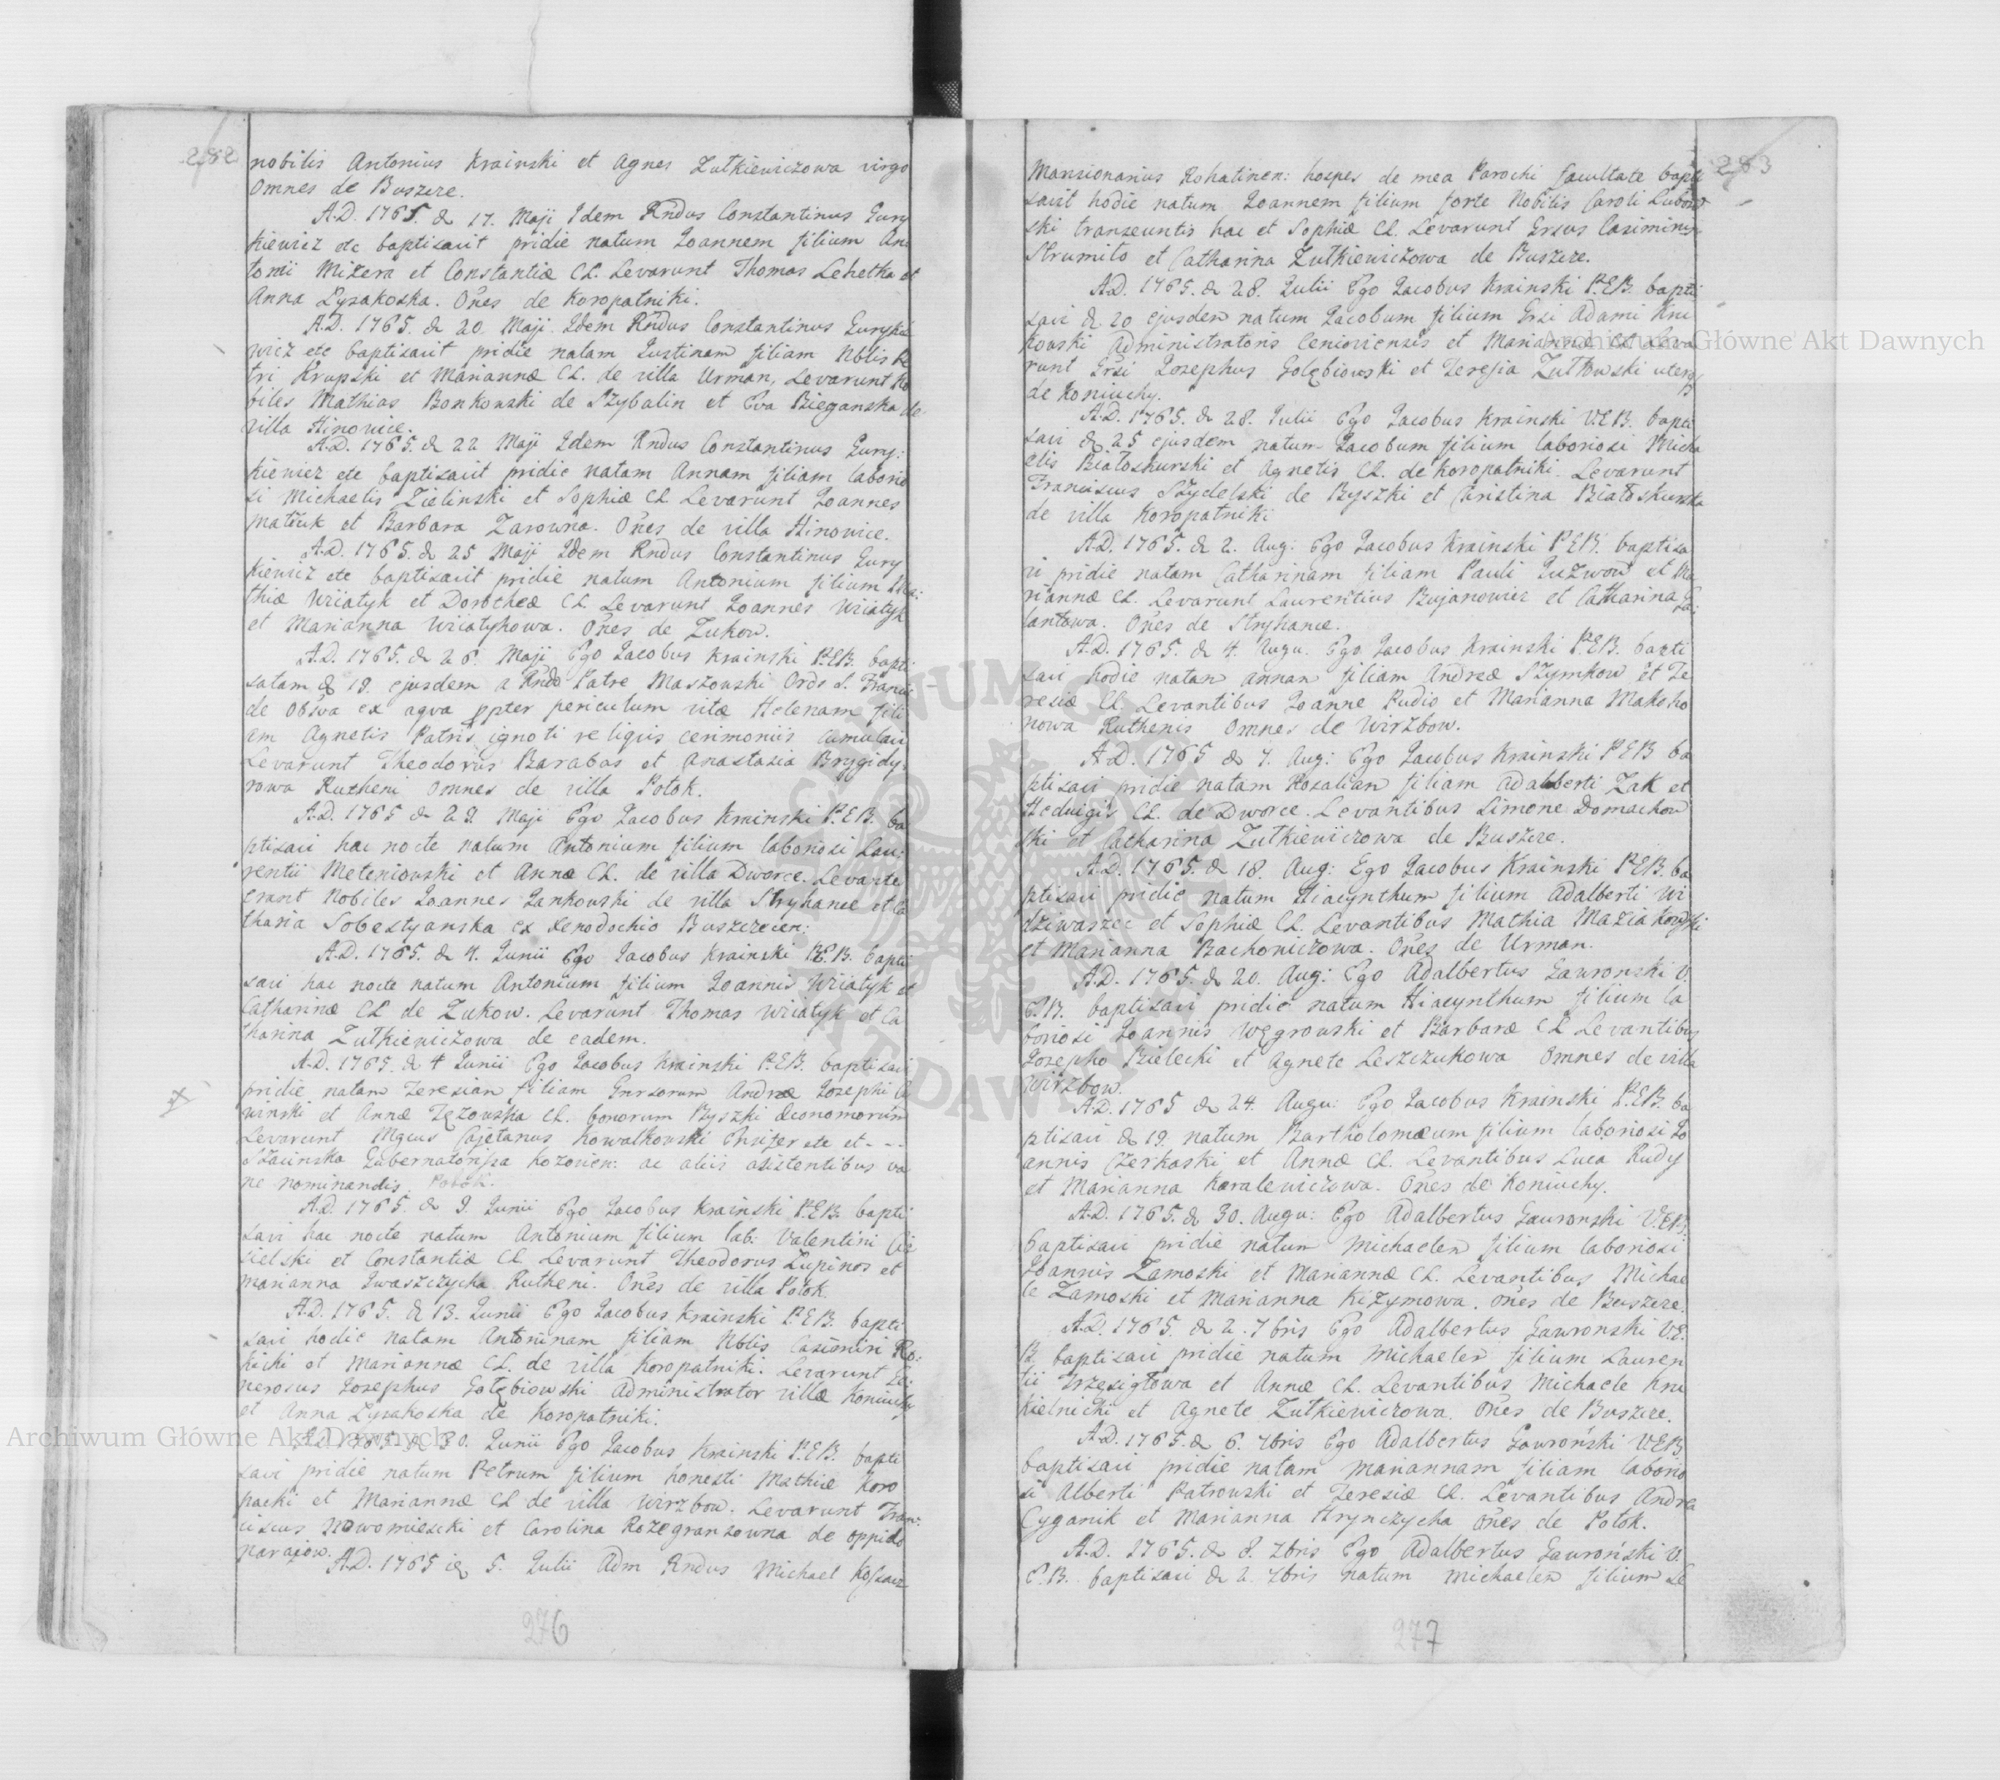 282
nobilis Antonius Krainski et Agnes Zutkiewiczowa virgo
Omnes de Buszcze.
A.D. 1765. d. 17. Maji Idem Rndus Constantinus Gury
kiewicz etc baptisavit pridie natum Joannem filium An
tonii Mizera et Constantiæ CL. Levarunt Thomas Lehetka et
Anna Lysakoska. Oñes de Koropatniki.
A.D. 1765. d. 20. Maji. Idem Rndus Constantinus Gurykie
wicz etc baptisavit pridie natam Justinam filiam Nblis Pe
tri Krupski et Mariannæ CL. de villa Urman, Levarunt No
biles Mathias Bonkowski de Szybalin et Eva Bieganska de
villa Hinowice.
A.D. 1765. d. 22 Maji Idem Rndus Constantinus Gury:
kiewicz etc baptisavit pridie natam Annam filiam laborio
si Michaelis Zielinski et Sophiæ CL Levarunt Joannes
Matiiuk et Barbara Zarowna. Oñes de villa Hinowice.
A.D. 1765. d. 25 Maji Idem Rndus Constantinus Gury
kiewicz etc baptisavit pridie natum Antonium filium Ma:
thiæ Wiiatyk et Dorotheæ CL Levarunt Joannes Wiiatyk
et Marianna Wiiatykowa. Oñes de Zukow.
A.D. 1765. d. 26. Maji Ego Jacobus Krainski P.E.B. bapti
satam d. 19. ejusdem a Rndo Patre Maszowski Ords S. Franc:
de Obsva ex aqva ppter periculum vitæ Helenam fili
am Agnetis Patris ignoti reliquis cerimoniis cumulavi
Levarunt Theodorus Barabas et Anastasia Brygidy:
rowa Rutheni omnes de villa Potok.
A.D. 1765 d. 29. Maji Ego Jacobus Krainski P.E.B. ba
ptisavi hac nocte natum Antonium filium laboriosi Lau:
rentii Meteniowski et Annæ CL. de villa Dworce. Levante
erant Nobiles Joannes Jankowski de villa Stryhance et Ca
tharia Sobestyanska ex Xenodochio Buszczecien:
A.D. 1765. d. 4. Junii Ego Jacobus Krainski P.E.B. bapti
savi hac nocte natum Antonium filium Joannis Wiiatyk et
Catharinæ CL de Zukow. Levarunt Thomas Wiiatyk et Ca
tharina Zutkiewiczowa de eadem.
A.D. 1765. d. 4 Junii Ego Jacobus Krainski P.E.B. baptisavi
pridie natam Teresian filiam Gnrsorum Andreæ Josephi
winski et Annæ CL. bonorum Byszki Œconomorum
Levarunt Mgcus Cajetanus Kowalkowski etc et - - -
Gubernatorissa Kozovien: ac aliis asistentibus
ne nominandis. Potok.
A.D. 1765. d. 9. Junii Ego Jacobus Krainski P.E.B. bapti
savi hac nocte natum Antonium filium lab: Valentini Cie
sielski et Constantiæ CL Levarunt Theodorus Lupinos et
Marianna Iwaszczycha Rutheni. Oñes de villa Potok.
A.D. 1765. d. 13. Junii Ego Jacobus Krainski P.E.B. bapti
savi hodie natam Antoninam filiam Nblis Casimiri Ro:
kicki et Mariannæ CL. de villa Koropatniki. Levarunt Ge:
nerosus Josephus Gołębiowski Administrator villæ Koniuchy
et Anna Lysakoska de Koropatniki.
A.D. 1765. d. 30. Junii Ego Jacobus Krainski P.E.B. bapti
savi pridie natum Petrum filium honesti Mathiæ Koro
packi et Mariannæ CL de villa Wirzbow. Levarunt Fran:
ciscus Nowomiescki et Carolina Rozegranzowna de oppido
Narajow.
A.D. 1765 d. 5. Julii Adm Rndus Michael Kossacz
276
283
Mansionarius Rohatinen: hospes de mea Parochi facultate bapti
savit hodie natum Joannem filium forte Nobilis Caroli Lubow
ski transeuntis hac et Sophiæ CL. Levarunt Grsus Casimirus
Strumiło et Catharina Zutkiewiczowa de Buszcze.
A.D. 1765. d. 28. Julii Ego Jacobus Krainski P.E.B. bapti
savi d. 20 ejusdem natum Jacobum filium Grsi Adami Kru
kowski Administratoris Cenioviensis et Mariannæ CL Leva
runt Grsi Josephus Gołębiowski et Teresia Zutkowski uterq
de Koniuchy.
A.D. 1765. d. 28. Julii Ego Jacobus Krainski V.E.B. bapti
savi d. 25 ejusdem natum Jacobum filium laboriosi Micha
elis Białoskurski et Agnetis CL. de Koropatniki. Levarunt
Franciscus Szydelski de Byszki et Christina Białoskurska
de villa Koropatniki
A.D. 1765. d. 2. Aug: Ego Jacobus Krainski P.E.B. baptisa
vi pridie natam Catharinam filiam Pauli Juzwow et Ma
riannæ CL. Levarunt Laurentius Bujanowicz et Catharina Ga:
lantowa. Oñes de Stryhance.
A.D. 1765. d. 4. Augu. Ego Jacobus Krainski P.E.B. bapti
savi hodie natan annan filiam Andreæ Szymkow et Te
resiæ CL. Levantibus Joanne Pudlo et Marianna Maksho
nowa Ruthenis omnes de Wirzbow.
A.D. 1765 d. 7. Aug: Ego Jacobus Krainski P.E.B ba
ptisavi pridie natam Rosalian filiam Adalberti Zak et
Hedvigis CL. de Dworce. Levantibus Simone Domachow
ski et Catharina Zutkiewiczowa de Buszcze.
A.D. 1765. d. 18. Aug: Ego Jacobus Krainski P.E.B. ba
ptisavi pridie natum Hiacynthum filium Adalberti Wi
dziwaszec et Sophiæ CL. Levantibus Mathia Maziakowski
et Marianna Bachoniczowa. Oñes de Urman.
A.D. 1765. d. 20. Aug: Ego Adalbertus Gawronski V.
E.B. baptisavi pridie natum Hiacynthum filium la
boriosi Joannis Węgrowski et Barbaræ CL Levantibus
Josepho Bielecki et Agnete Leszczukowa omnes de villa
Wirzbow.
A.D. 1765 d. 24. Augu: Ego Jacobus Krainski P.E.B. ba
ptisavi d. 19. natum Bartholomæum filium laboriosi Jo
annis Czerkaski et Annæ CL. Levantibus Luca Rudy
et Marianna Karalewiczowa. Oñes de Koniuchy.
A.D. 1765. d. 30. Augu: Ego Adalbertus Gauronski V.E.B.
baptisavi pridie natum Michaelen filium laboriosi
Joannis Zamoski et Mariannæ CL. Levantibus Michae
le Zamoski et Marianna Kizymowa. Oñes de Buszcze.
A.D. 1765. d. 2. 7bris Ego Adalbertus Gawronski V.E.
B. baptisavi pridie natum Michaelen filium Lauren
tii Trzesigłowa et Annæ CL. Levantibus Michaele Kru
kielnicki et Agnete Zutkiewiczowa. Oñes de Buszcze.
A.D. 1765. d. 6. 7bris Ego Adalbertus Gawroński V.E.B
baptisavi pridie natam Mariannam filiam laborio
si Alberti Patrowski et Teresiæ CL. Levantibus Andrea
Cyganik et Marianna Hrynczycha Oñes de Potok.
A.D. 1765. d. 8. 7bris Ego Adalbertus Gawroński V.
E.B. baptisavi d. 2. 7bris natum Michaelen filium Le
277
Archiwum Główne Akt Dawnych
Archiwum Główne Akt Dawnych
ARCHIWUM GŁÓWNE AKT DAWNYCH